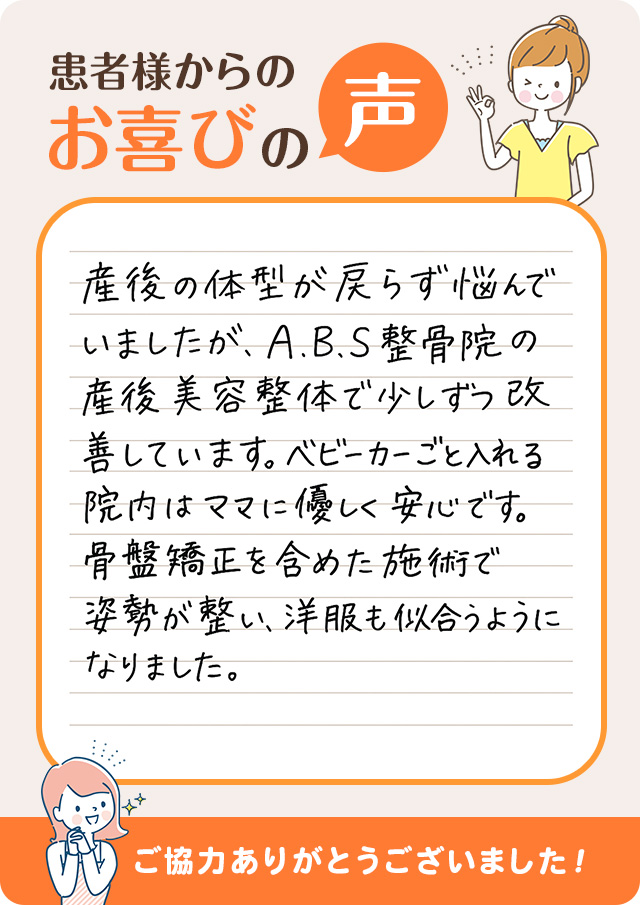 患者様からの
お喜びの声
産後の体型が戻らず悩んで
いましたが、A.B.S整骨院の
産後美容整体で少しずつ改
善しています。ベビーカーごと入れる
院内はママに優しく安心です。
骨盤矯正を含めた施術で
姿勢が整い、洋服も似合うように
なりました。
ご協力ありがとうございました!